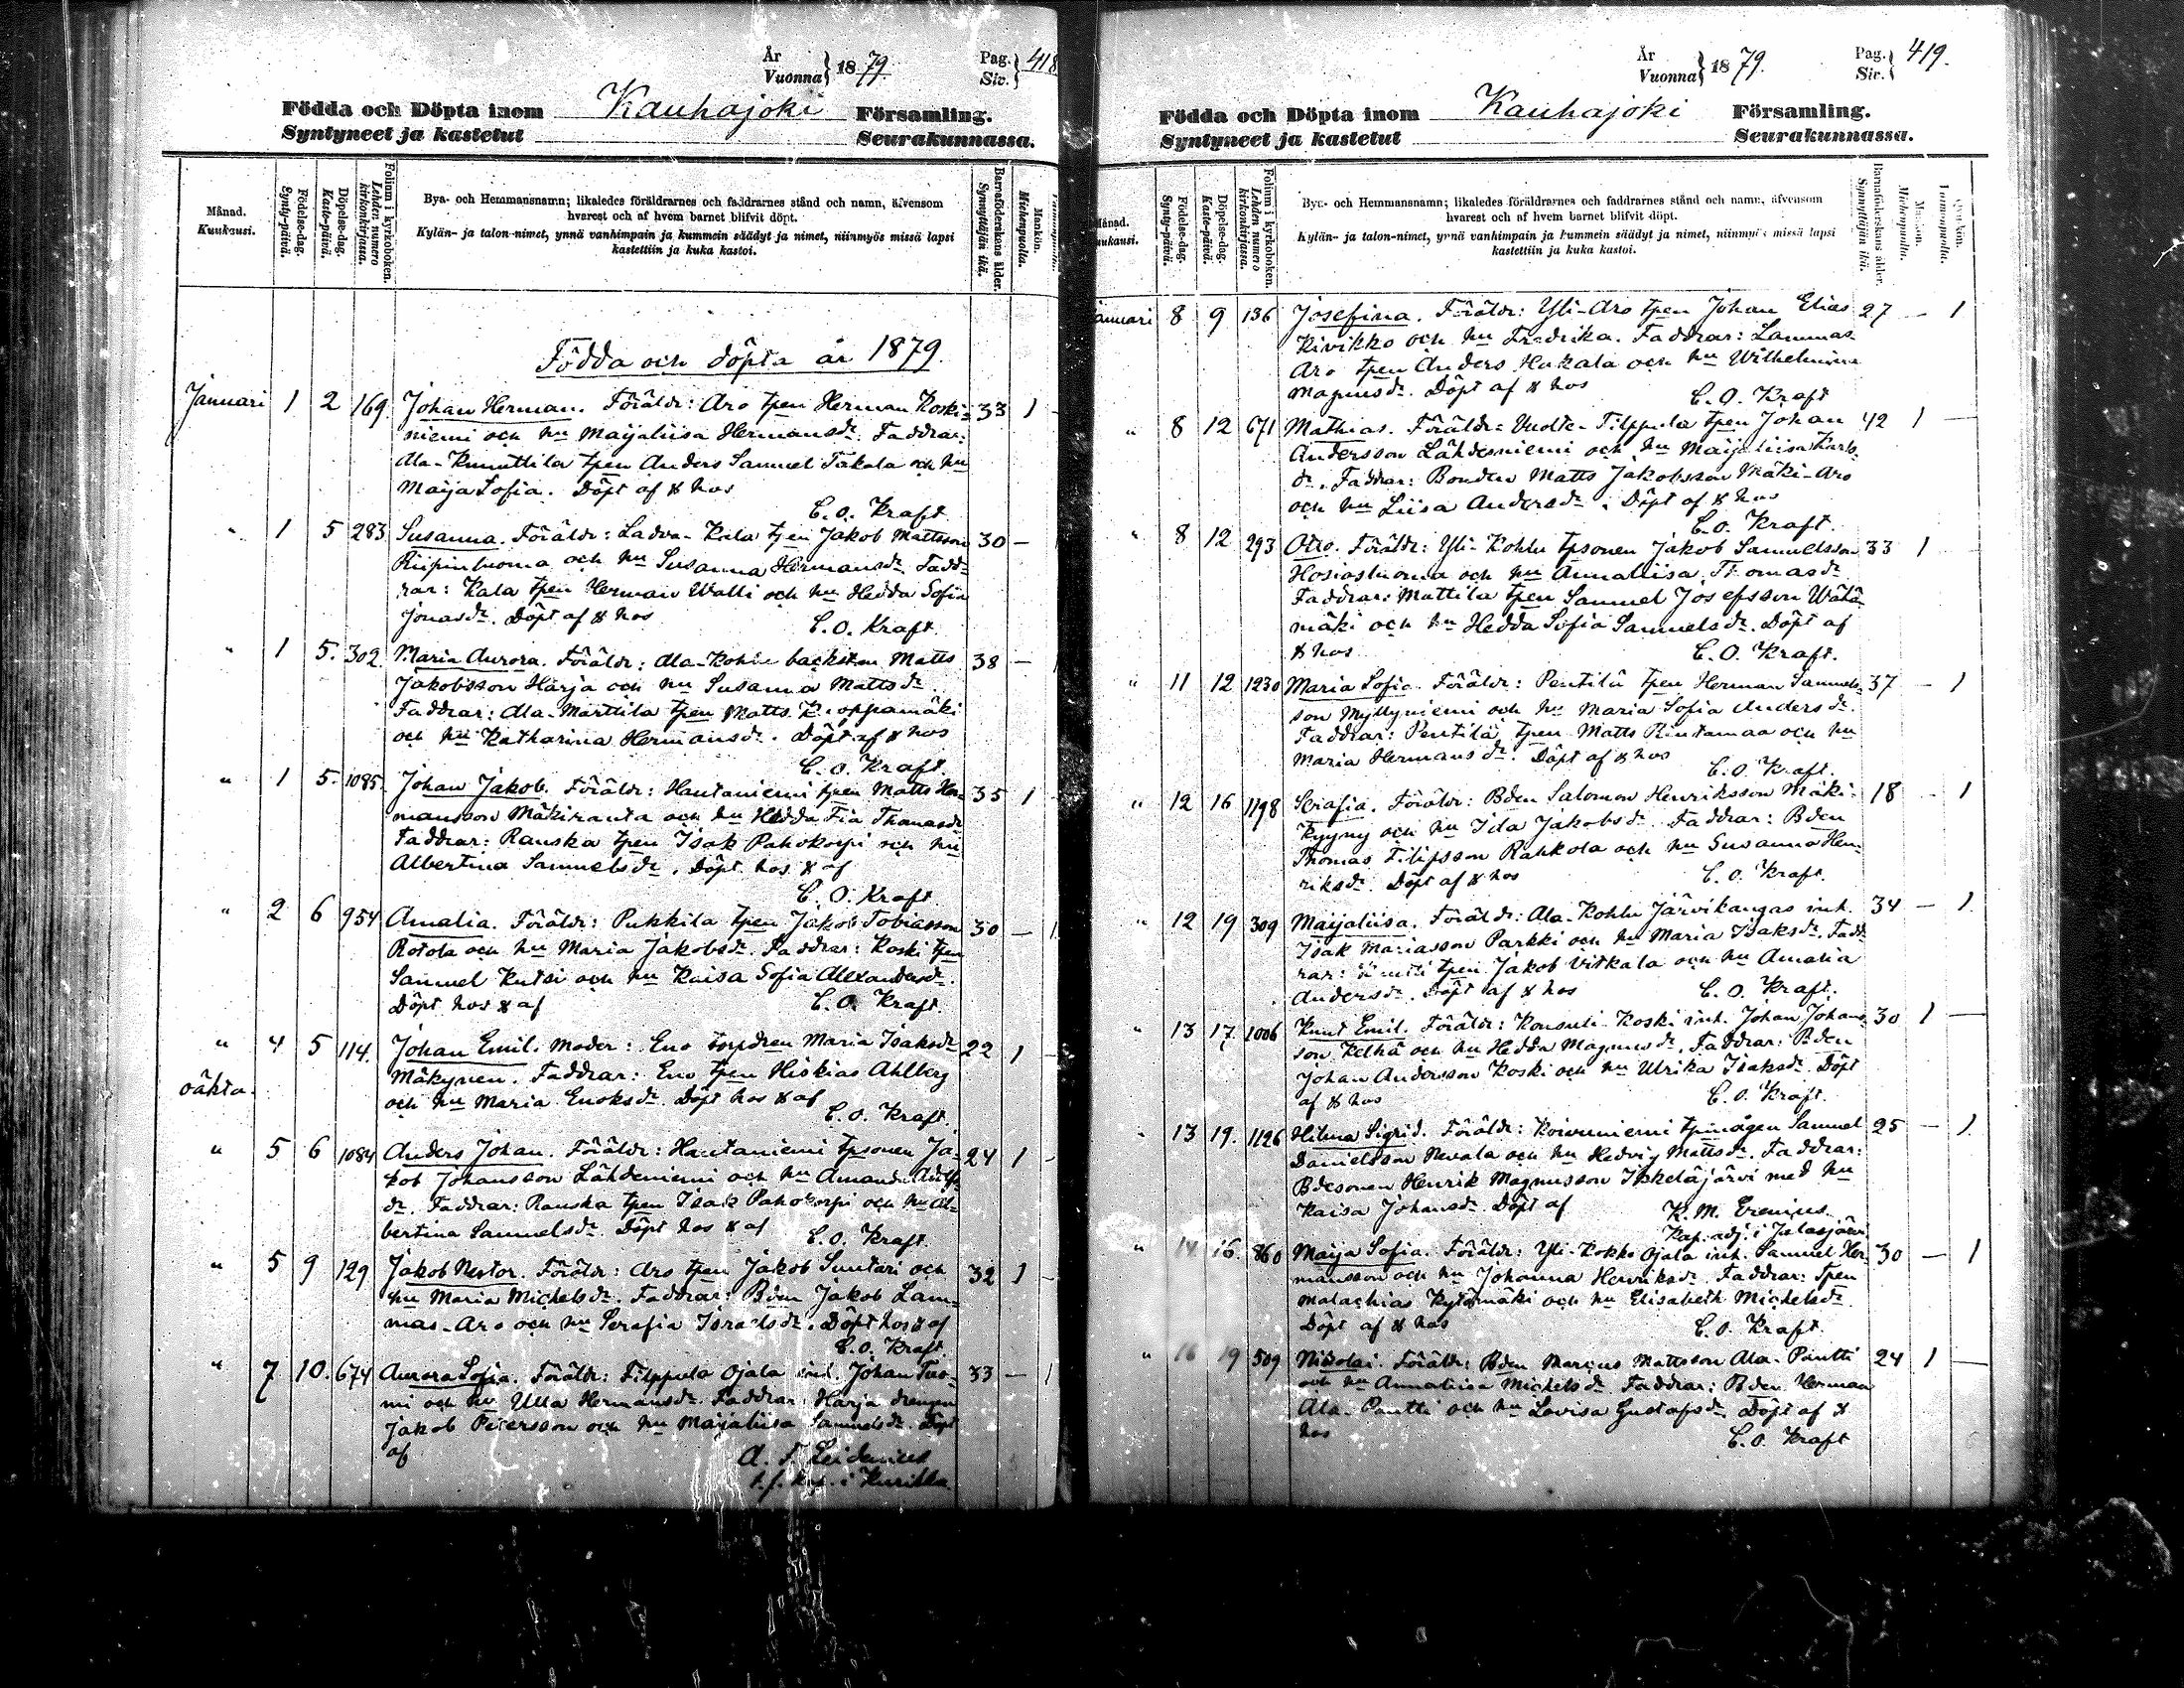 År
Vuonna } 1879.
Pag.
Siv. } 418
Födda och Döpta inom Kauhajoki Församling.
Syntyneet ja kastetut Seurakunnassa.
Månad.
Kuukausi.
Födelse-dag.
Synty-päivä.
Döpelse-dag.
Kaste-päivä.
Folium i kyrkoboken.
Lehden numero kirkonkirjassa.
Bya- och Hemmansnamn; likaledes föräldrarnes och faddrarnes stånd och namn, äfvensom
hvarest och af hvem barnet blifvit döpt.
Kylän- ja talon-nimet, ynnä vanhimpain ja kummein säädyt ja nimet, niinmyös missä lapsi
kastettiin ja kuka kastoi.
Barnaföderskans ålder.
Synnyttäjän ikä.
Mankön.
Miehenpuolia.
Födda och döpta år 1879.
Januari 1 2 169 Johan Herman. Föräldr: Aro tpen Herman Koski- 33 1
niemi och hu Maijaliisa Hermansdr. Faddrar:
Ala-Knuuttila tpen Anders Samuel Takala och hu
Maija Sofia. Döpt af & hos
C. O. Kraft
" 1 5 283 Susanna. Föräldr: Ladva-Kala tpen Jakob Mattsson 30 —
Riipinluoma och hu Susanna Hermansdr. Fadd-
rar: Kala tpen Herman Walli och hu Hedda Sofia
Jonasdr. Döpt af & hos
C. O. Kraft.
" 1 5. 302 Maria Aurora. Föräldr: Ala-Kohlu backstun Matts 38 —
Jakobsson Harja och hu Susanna Mattsdr
Faddrar: Ala-Marttila tpen Matts Knoppamäki
och hu Katharina Hermansdr. Döpt af & hos
C. O. Kraft.
" 1 5. 1085. Johan Jakob. Föräldr: Hautaniemi tpen Matts Her- 35 1
mansson Mäkiranta och hu Hedda Fia Thomasdr
Faddrar: Rauska tpen Isak Pahokorpi och hu
Albertina Samuelsdr. Döpt hos & af
C. O. Kraft
" 2 6 954 Amalia. Föräldr: Pukkila tpen Jakob Tobiasson 30 — 1
Rotola och hu Maria Jakobsdr. Faddrar: Koski tpen
Samuel Kutsi och hu Kaisa Sofia Alexandersdr.
Döpt hos & af
C. O. Kraft.
" 4 5 114. Johan Emil. Moder: Eno torpdren Maria Isaksdr 22 1
oäkta. Mäkynen. Faddrar: Eno tpen Hiskias Ahlberg
och hu Maria Enoksdr. Döpt hos & af
C. O. Kraft.
" 5 6 1084 Anders Johan. Föräldr: Hautaniemi tpsonen Ja- 24 1
kob Johansson Lähdeniemi och hu Amanda Adolfs-
dr. Faddrar: Rauska tpen Isak Pahokorpi och hu Al-
bertina Samuelsdr. Döpt hos & af
C. O. Kraft.
" 5 9 129 Jakob Nestor. Föräldr: Aro tpen Jakob Luutari och 32 1
hu Maria Michelsdr. Faddrar: Bden Jakob Lam-
mas-Aro och hu Serafia Israelsdr. Döpt hos & af
C. O. Kraft.
" 7 10. 674 Aurora Sofia. Föräldr: Filppula Ojala inh. Johan Tuo- 33 — 1
mi och hu Ulla Hermansdr. Faddrar: Harja drengen
Jakob Petersson och hu Maijaliisa Samuelsdr. Döpt
af
A. F. Leidenius
t.f. kap. i Kurikka.
År
Vuonna } 1879.
Pag.
Siv. } 419.
Födda och Döpta inom Kauhajoki Församling.
Syntyneet ja kastetut Seurakunnassa.
Månad.
Kuukausi.
Födelse-dag.
Synty-päivä.
Döpelse-dag.
Kaste-päivä.
Folium i kyrkoboken.
Lehden numero kirkonkirjassa.
Bya- och Hemmansnamn; likaledes föräldrarnes och faddrarnes stånd och namn, äfvensom
hvarest och af hvem barnet blifvit döpt.
Kylän- ja talon-nimet, ynnä vanhimpain ja kummein säädyt ja nimet, niinmyös missä lapsi
kastettiin ja kuka kastoi.
Barnaföderskans ålder.
Synnyttäjän ikä.
Mankön.
Miehenpuolia.
Januari 8 9 136 Josefina. Föräldr: Yli-Aro tpen Johan Elias 27 — 1
Kivikko och hu Fredrika. Faddrar: Lammas-
Aro tpen Anders Hakala och hu Wilhelmina
Magnusdr. Döpt af & hos
C. O. Kraft
" 8 12 671 Mathias. Föräldr: Filppula tpen Johan 42 1 —
Andersson Lähdesniemi och hu Maijaliisa Karls-
dr. Faddrar: Bonden Matts Jakobsson Mäki-Aro
och hu Liisa Andersdr. Döpt af & hos
C. O. Kraft.
" 8 12 293 Otto. Föräldr: Yli-Kohlu tpsonen Jakob Samuelsson 33 1
Hosiasluoma och hu Annaliisa Thomasdr
Faddrar: Mattila tpen Samuel Josefsson Wähä-
mäki och hu Hedda Sofia Samuelsdr. Döpt af
& hos
C. O. Kraft.
" 11 12 1230 Maria Sofia. Föräldr: Pentilä tpen Herman Samuels- 37 — 1
son Myllyniemi och hu Maria Sofia Andersdr.
Faddrar: Pentilä tpen Matts Rintamaa och hu
Maria Hermansdr. Döpt af & hos
C. O. Kraft.
" 12 16 1198 Serafia. Föräldr: Bden Salomon Henriksson Mäki- 18 — 1
Kyyny och hu Ida Jakobsdr. Faddrar: Bden
Thomas Filipsson Rahkola och hu Susanna Hen-
riksdr. Döpt af & hos
C. O. Kraft.
" 12 19 309 Maijaliisa. Föräldr: Ala-Kohlu Järvikangas inh. 34 — 1.
Isak Mariasson Parkki och hu Maria Isaksdr. Fadd-
rar: tpen Jakob Vitkala och hu Amalia
Andersdr. Döpt af & hos
C. O. Kraft.
" 13 17. 1006 Knut Emil. Föräldr: Konsuli-Koski inh. Johan Johans- 30 1 —
son Kelhä och hu Hedda Magnusdr. Faddrar: Bden
Johan Andersson Koski och hu Ulrika Isaksdr. Döpt
af & hos
C. O. Kraft.
" 13 19. 1126 Hilma Sigrid. Föräldr: Koivuniemi tpmågen Samuel 25 — 1.
Danielsson Nevala och hu Hedvig Mattsdr. Faddrar:
Bdesonen Henrik Magnusson Ikkeläjärvi med hu
Kaisa Johansdr. Döpt af
K. M. Evenius
Kap. adj. i Jalasjärvi
" 14 16. 860 Maija Sofia. Föräldr: Yli-Kokko Ojala inh. Samuel Her- 30 — 1
mansson och hu Johanna Henriksdr. Faddrar: Tpen
Malachias Kytömäki och hu Elisabeth Michelsdr
Döpt af & hos
C. O. Kraft.
" 16 19 509 Nikolai. Föräldr: Bden Marcus Mattsson Ala-Panttti 24 1 —
och hu Annaliisa Michelsdr. Faddrar: Bden Herman
Ala-Pantti och hu Lovisa Gustafsdr. Döpt af &
hos
C. O. Kraft